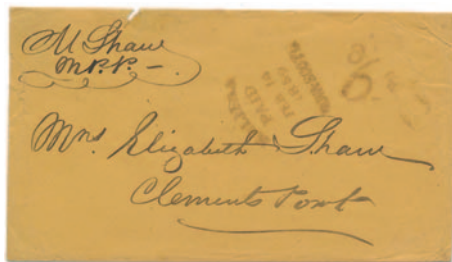 M Shaw
M.P.P.
PAID
Mrs Elizabeth Shaw
Clements Port